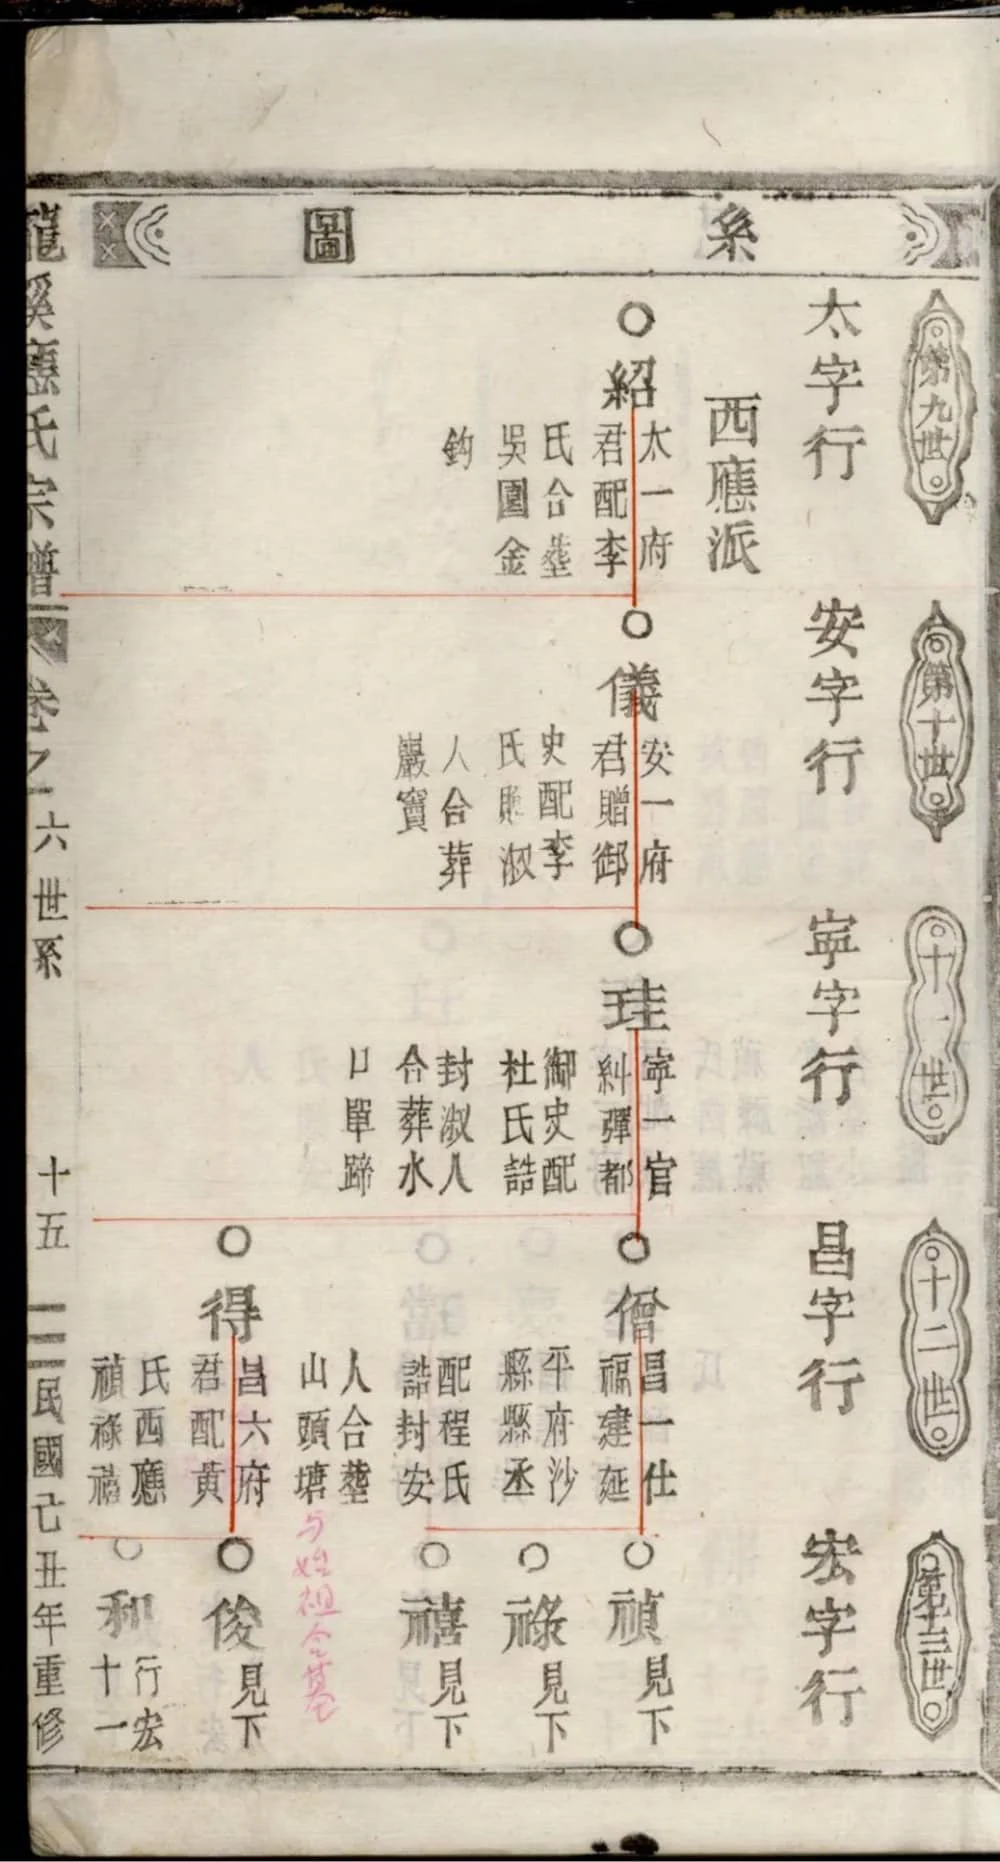 系圖
第九世
太字行
西應派
紹
太一府
君配李
氏合塟
吳園金
鈎
第十世
安字行
儀
安一府
君贈御
史配李
氏贈淑
人合葬
巖寶
十一世
寜字行
珪
寜一官
糾彈都
御史配
杜氏誥
封淑人
合葬水
口單蹄
十二世
昌字行
僧
昌一仕
福建延
平府沙
縣縣丞
配程氏
誥封安
人合塟
山頭塘
与始祖仝墓
得
昌六府
君配黄
氏西應
禎祿禧
第十三世
宏字行
禎
見下
祿
見下
禧
見下
俊
見下
和
行宏
十一
龍溪應氏宗譜
卷之一
六世系
十五
民國己丑年重修